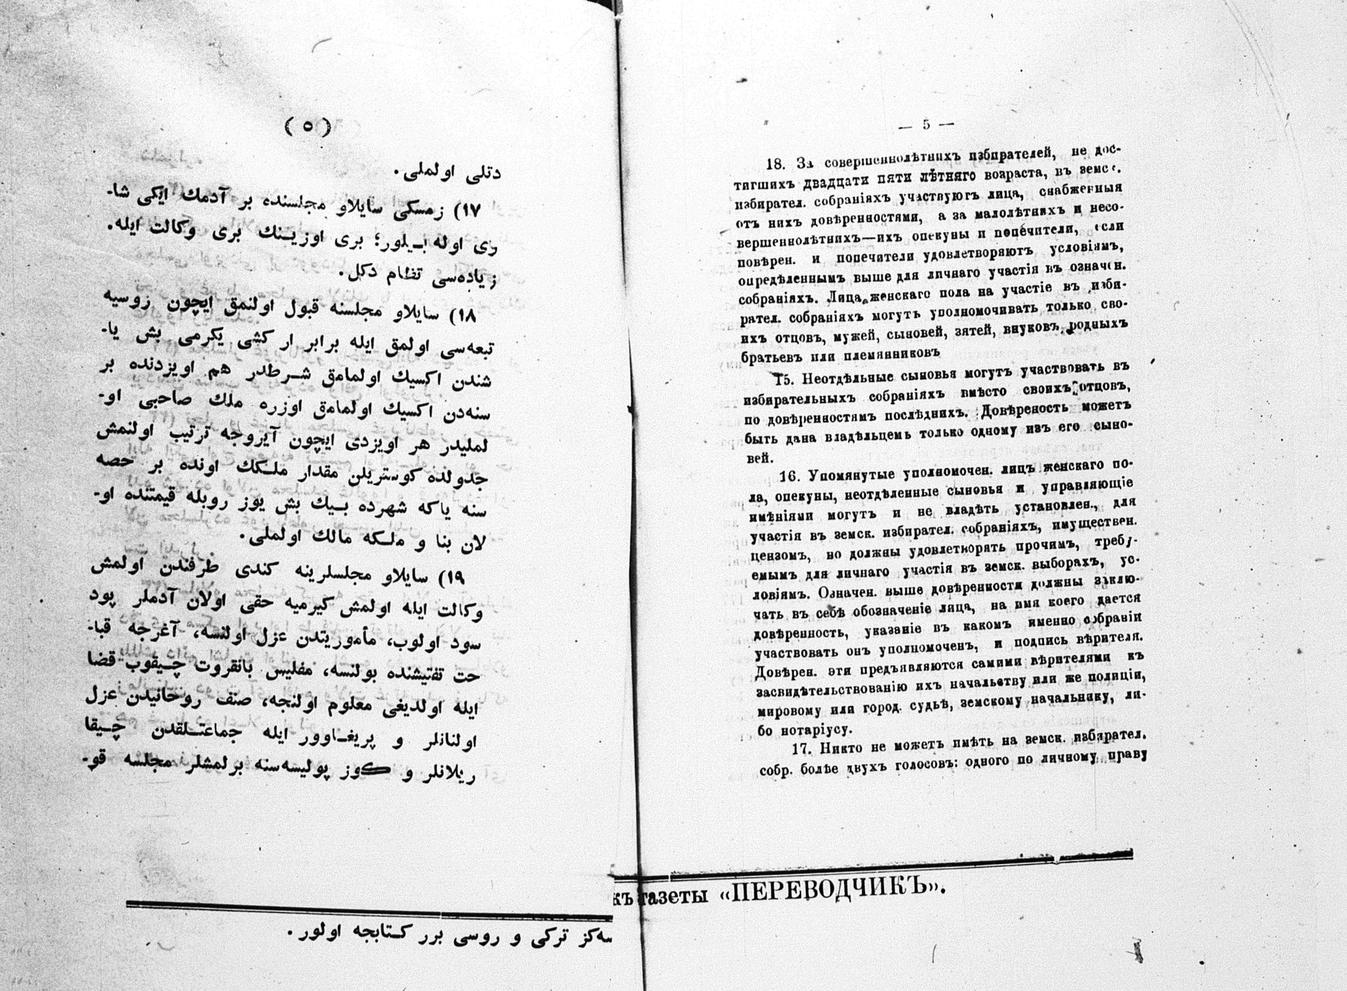 ( ٥ )
دتلی اولملی.
١٧) زمسکی سایلاو مجلسنده بر آدمك ایکی شا-
ری اوله بیلور؛ بری اوزینك بری وکالت ایله.
زیاده‌سی تفتام دکل.
١٨) سایلاو مجلسنه قبول اولنمق ایچون روسیه
تبعه‌سی اولمق ایله برابر ار کشی یکرمی بش یا-
شندن اکسیك اولمامق شرطدر هم اویزدنده بر
سنه‌دن اکسیك اولمامق اوزره ملك صاحبی او-
لملیدر هر اویزدی ایچون آیروجه ترتیب اولنمش
جدولده کوستریلن مقدار ملکك اونده بر حصه
سنه یاکه شهرده بیك بش یوز روبله قیمتنده او-
لان بنا و ملکه مالك اولملی.
١٩) سایلاو مجلسلرینه کندی طرفندن اولمش
وکالت ایله اولمش کیرمیه حقی اولان آدملر پود
سود اولوب، مأموریتدن عزل اولنسه، آغرجه قبا-
حت تفتیشنده بولنسه، مفلیس بانقروت چیقوب قضا
ایله اولدیغی معلوم اولنجه، صنف روحانیدن عزل
اولنانلر و پریغاوور ایله جماعتلقدن چیقا
ریلانلر و کوز پولیسه‌سنه برلمشلر مجلسه قو-
سه‌کز ترکی و روسی برر کتابجه اولور.
— 5 —
18. За совершеннолѣтнихъ избирателей, не дос-
тигшихъ двадцати пяти лѣтняго возраста, въ земс.
избирател. собраніяхъ участвуютъ лица, снабженныя
отъ нихъ довѣренностями, а за малолѣтнихъ и несо-
вершеннолѣтнихъ—ихъ опекуны и попечители, если
повѣрен. и попечители удовлетворяютъ условіямъ,
опредѣленнымъ выше для личнаго участія въ означен.
собраніяхъ. Лица женскаго пола на участіе въ изби-
рател. собраніяхъ могутъ уполномочивать только сво-
ихъ отцовъ, мужей, сыновей, зятей, внуковъ, родныхъ
братьевъ или племянниковъ
15. Неотдѣльные сыновья могутъ участвовать въ
избирательныхъ собраніяхъ вмѣсто своихъ отцовъ,
по довѣренностямъ послѣднихъ. Довѣреность можетъ
быть дана владѣльцемъ только одному изъ его сыно-
вей.
16. Упомянутые уполномочен. лицъ женскаго по-
ла, опекуны, неотдѣленные сыновья и управляющіе
имѣніями могутъ и не владѣть установлен., для
участія въ земск. избирател. собраніяхъ, имуществен.
цензомъ, но должны удовлетворять прочимъ, требу-
емымъ для личнаго участія въ земск. выборахъ, ус-
ловіямъ. Означен. выше довѣренности должны заклю-
чать въ себѣ обозначеніе лица, на имя коего дается
довѣренность, указаніе въ какомъ именно собраніи
участвовать онъ уполномоченъ, и подпись вѣрителя.
Довѣрен. эти предъявляются самими вѣрителями къ
засвидѣтельствованію ихъ начальству или же полиціи,
мировому или город. судьѣ, земскому начальнику, ли-
бо нотаріусу.
17. Никто не можетъ имѣть на земск. избирател.
собр. болѣе двухъ голосовъ: одного по личному праву
къ газеты «ПЕРЕВОДЧИКЪ».